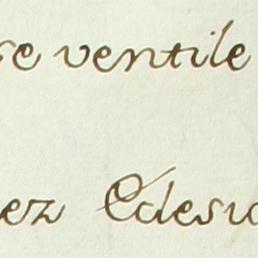 se ventile
ez Eclesia